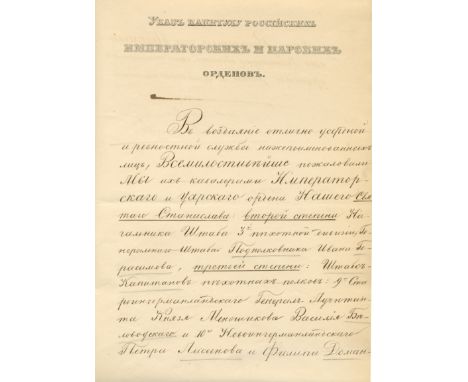 Указъ капитулу россiйскихъ
императорскихъ и царскихъ
орденовъ.
Въ воздаянiе отлично усердной
и ревностной службы нижепоименованныхъ
лицъ, Всемилостивѣйше пожаловали
Мы ихъ кавалерами Император-
скаго и Царскаго ордена Нашего Свя-
таго Станислава: второй степени На-
чальника Штаба 3й пѣхотной дивизiи, Ге-
неральнаго Штаба Подполковника Ивана Ге-
расимова, третьей степени: Штабсъ-
Капитановъ пѣхотныхъ полковъ: 9го Ста-
роингерманландскаго Генералъ Адъютан-
та Князя Меншикова Василiя Бѣ-
ловодскаго и 10го Новоингерманландскаго
Петра Лисенова и Филипа Доман-